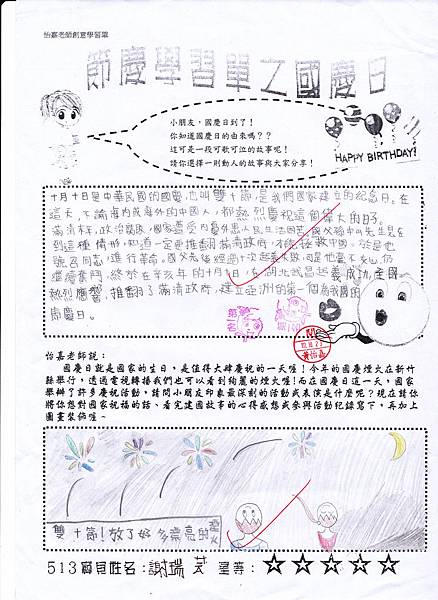 怡嘉老師創意學習單
節慶學習單之國慶日
小朋友，國慶日到了！
你知道國慶日的由來嗎？？
這可是一段可歌可泣的故事呢！
請你選擇一則動人的故事與大家分享！
HAPPY BIRTHDAY!
十月十日是中華民國的國慶，也叫雙十節，是我們國家建立的紀念日。在
這天，不論海內或海外的中國人，都熱烈慶祝這個偉大的日子。
滿清末年，政治腐敗，國家遭受內憂外患，人民生活困苦，國父孫中山先生見
到這種情形，知道一定要推翻滿清政府，才能拯救中國，於是他
號召同志，進行革命。國父先後經過十次起義失敗，可是他並不灰心，仍
繼續奮鬥，終於在辛亥年的10月10日，在湖北武昌起義成功，全國
熱烈響應，推翻了滿清政府，建立亞洲的第一個
國慶日。
第一名
黃怡嘉
怡嘉老師說：
國慶日就是國家的生日，是值得大肆慶祝的一天喔！今年的國慶煙火在新竹
縣舉行，透過電視轉播我們也可以看到絢麗的煙火喔！而在國慶日這一天，國家
學辦了許多慶祝活動，請問小朋友印象最深刻的活動或表演是什麼呢？現在請你
將你想對國家祝福的話、看完建國故事的心得感想或參與活動紀錄寫下，再加上
圖畫裝飾喔～
雙十節！放了好多漂亮的煙火
513寶貝姓名：謝瑞芃 星等：☆☆☆☆☆